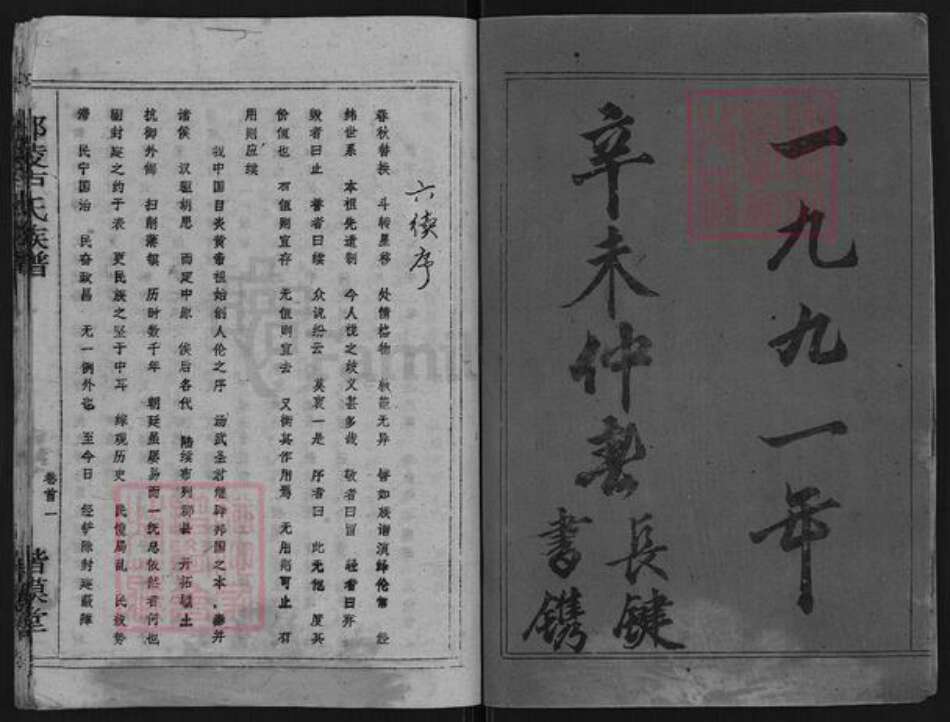 一九九一年
辛未仲春
長鍵
書鐫
六續序
春秋替换 斗转星移 处情格物 轨范无异 譬如族谱演绎伦常 经
纬世系 本祖先遗制 今人忧之歧义甚多哉 敬者曰留 轻者曰弃
毁者曰止 誉者曰续 众说纷云 莫衷一是 序者曰 此无他 度其
价值也 有值则宜存 无值则宜去 又衡其作用焉 无用则可止 有
用则应续
我中国自炎黄帝祖始创人伦之序 汤武圣君继肇邦国之本 秦并
诸侯 汉驱胡思 而定中原 俟后各代 陆续布列郡县 开拓疆土
抗御外侮 扫削藩镇 历时数千年 朝廷虽屡易而一统总依然者何也
封建之约于表 更民族之坚于中耳 综观历史 民愤局乱 民疲势
滞 民宁国治 民奋政昌 无一例外也 至今日 经铲除封建蔽障
氏族譜
卷首一
堂